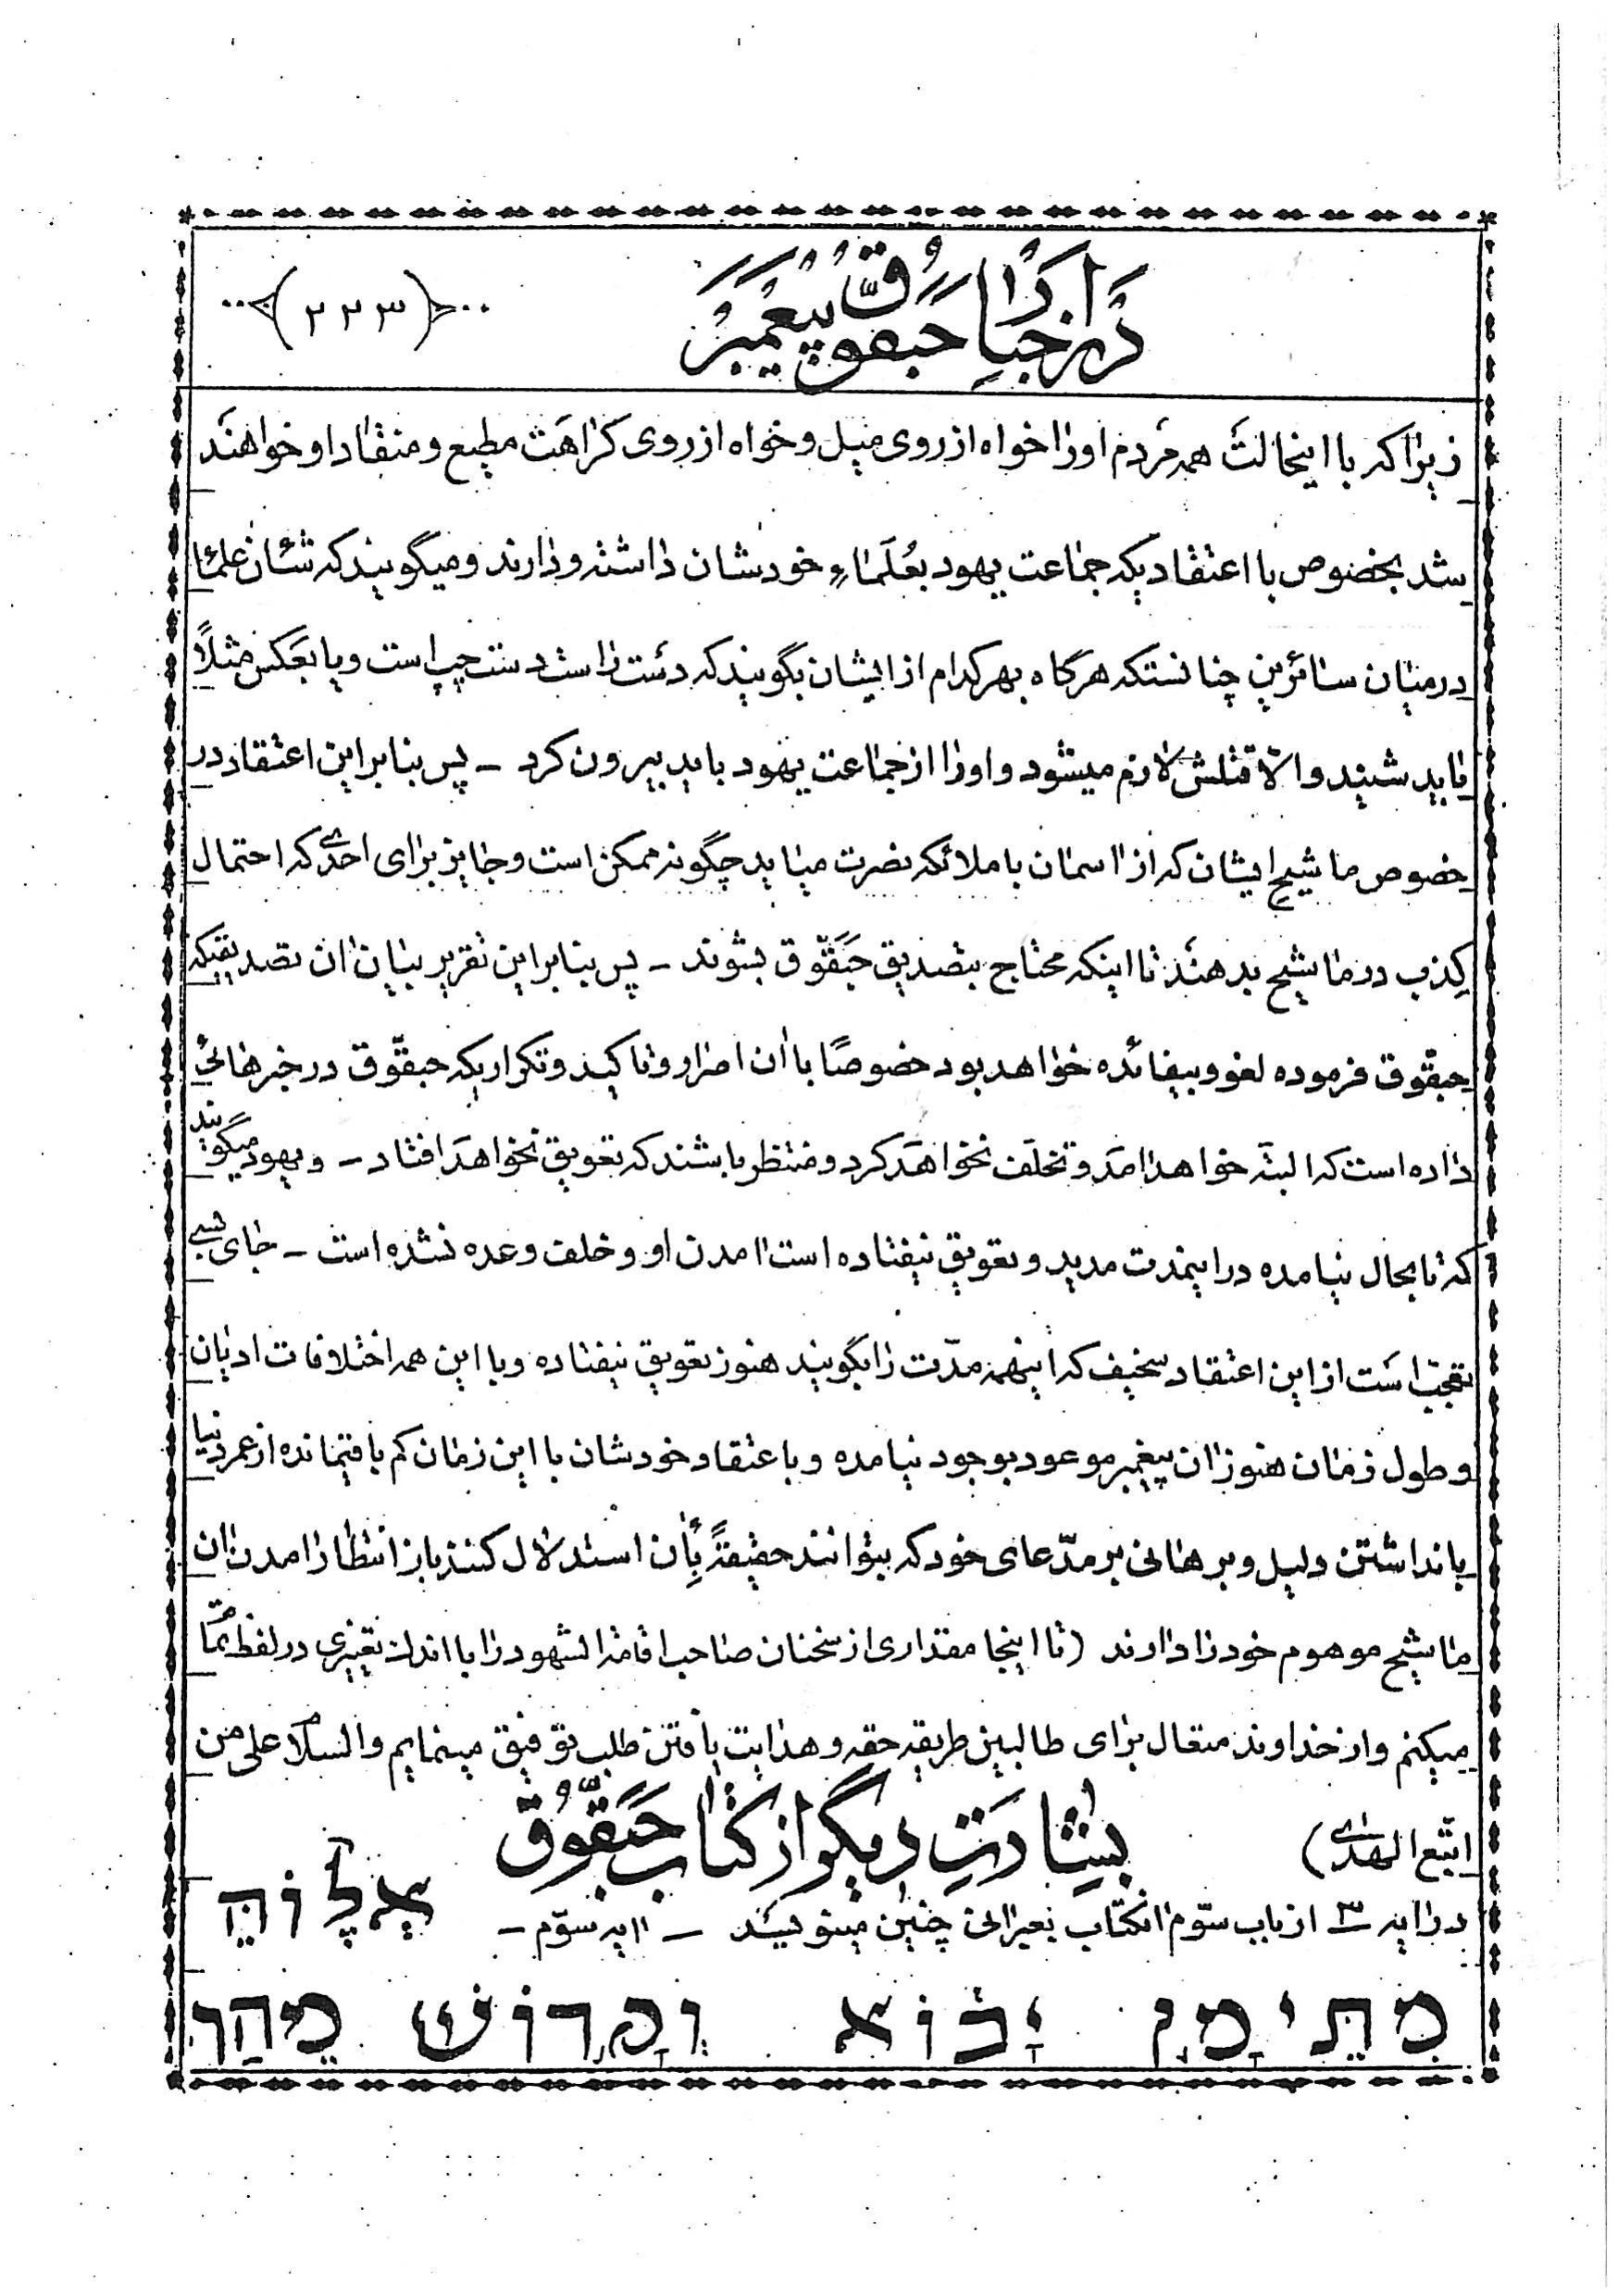 در اخبار حبقوق پیغمبر
(۲۲۳)
زیرا که با اینحالت همه مردم اورا خواه از روی میل و خواه از روی کراهت مطیع و منقاد او خواهند
شد بخصوص با اعتقادیکه جماعت یهود بعُلَماءِ خودشان داشته و دارند و میگویند که شئان علما
در میان سائرین چنانستکه هرگاه بهر کدام از ایشان بگویند که دست راست دست چپ است و یا بعکس مثلاً
باید شنید والّا قتلش لازم میشود و اورا از جماعت یهود باید بیرون کرد – پس بنابراین اعتقاد در
خصوص ماشیح ایشان که از اسمان با ملائکه نصرت میاید چگونه ممکن است و جایز برای احدی که احتمال
کذب در ماشیح بدهند تا اینکه محتاج بتصدیق حَبَقّوق بشوند – پس بنابراین تقریر بیان ان تصدیقیکه
حبقّوق فرموده لغو و بیفائده خواهد بود خصوصًا با ان اصرار و تاکید و تکراریکه حبقّوق در خبرهائی
داده است که البته خواهد امد و تخلف نخواهد کرد و منتظر باشند که تعویق نخواهد افتاد – و یهود میگویند
که تا بحال نیامده در اینمدت مدید و تعویق نیفتاده است امدن او و خلف وعده نشده است – جای بسی
تعجب است از این اعتقاد سخیف که اینهمه مدّت را بگویند هنوز تعویق نیفتاده و با این همه اختلافات ادیان
و طول زمان هنوز ان پیغمبر موعود بوجود نیامده و باعتقاد خودشان با این زمان کم باقیمانده از عمر دنیا
با نداشتن دلیل و برهانی بر مدّعای خود که بتوانند حقیقةً بِان استدلال کنند باز انتظار امدن ان
ماشیح موهوم خود را دارند (تا اینجا مقداری از سخنان صاحب اقامة الشهود را با اندک تغییری در لفظ تمام
میکنم و از خداوند متعال برای طالبین طریقه حقه و هدایت یافتن طلب توفیق مینمایم والسلام علی من
اتبع الهدی)
بشارتِ دیگر از کتاب حَبَقّوُق
در ایه ۳ از باب سوّم انکتاب بعبرانی چنین مینویسد – ایه سوّم – אֱלוֹהַ
מִתֵּימָן יָבוֹא וְקָדוֹשׁ מֵהַר